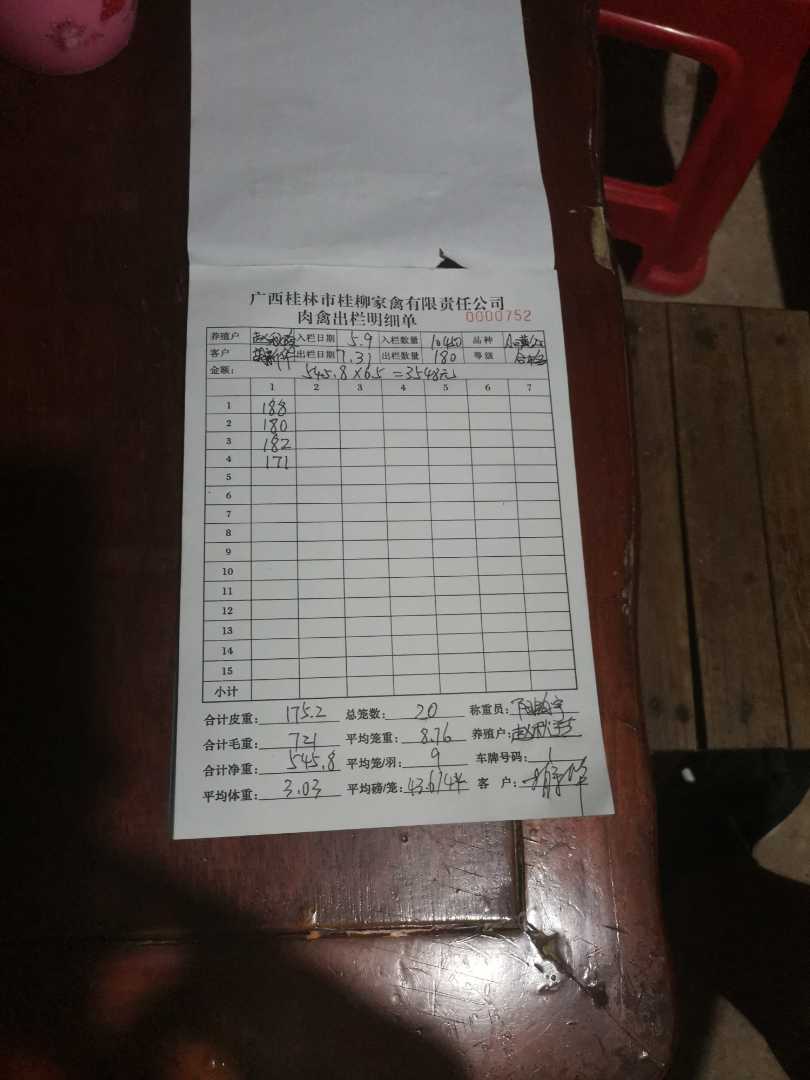 广西桂林市桂柳家禽有限责任公司
肉禽出栏明细单 0000752
养殖户 入栏日期 5.9 入栏数量 10450 品种
客户 出栏日期 7.31 出栏数量 180 等级
金额: 545.8×6.5=3548元
1 2 3 4 5 6 7
1 188
2 180
3 182
4 171
5
6
7
8
9
10
11
12
13
14
15
小计
合计皮重: 175.2 总笼数: 20 称重员:
合计毛重: 721 平均笼重: 8.76 养殖户:
合计净重: 545.8 平均笼/羽: 9 车牌号码: 1
平均体重: 3.03 平均磅/笼: 客 户: